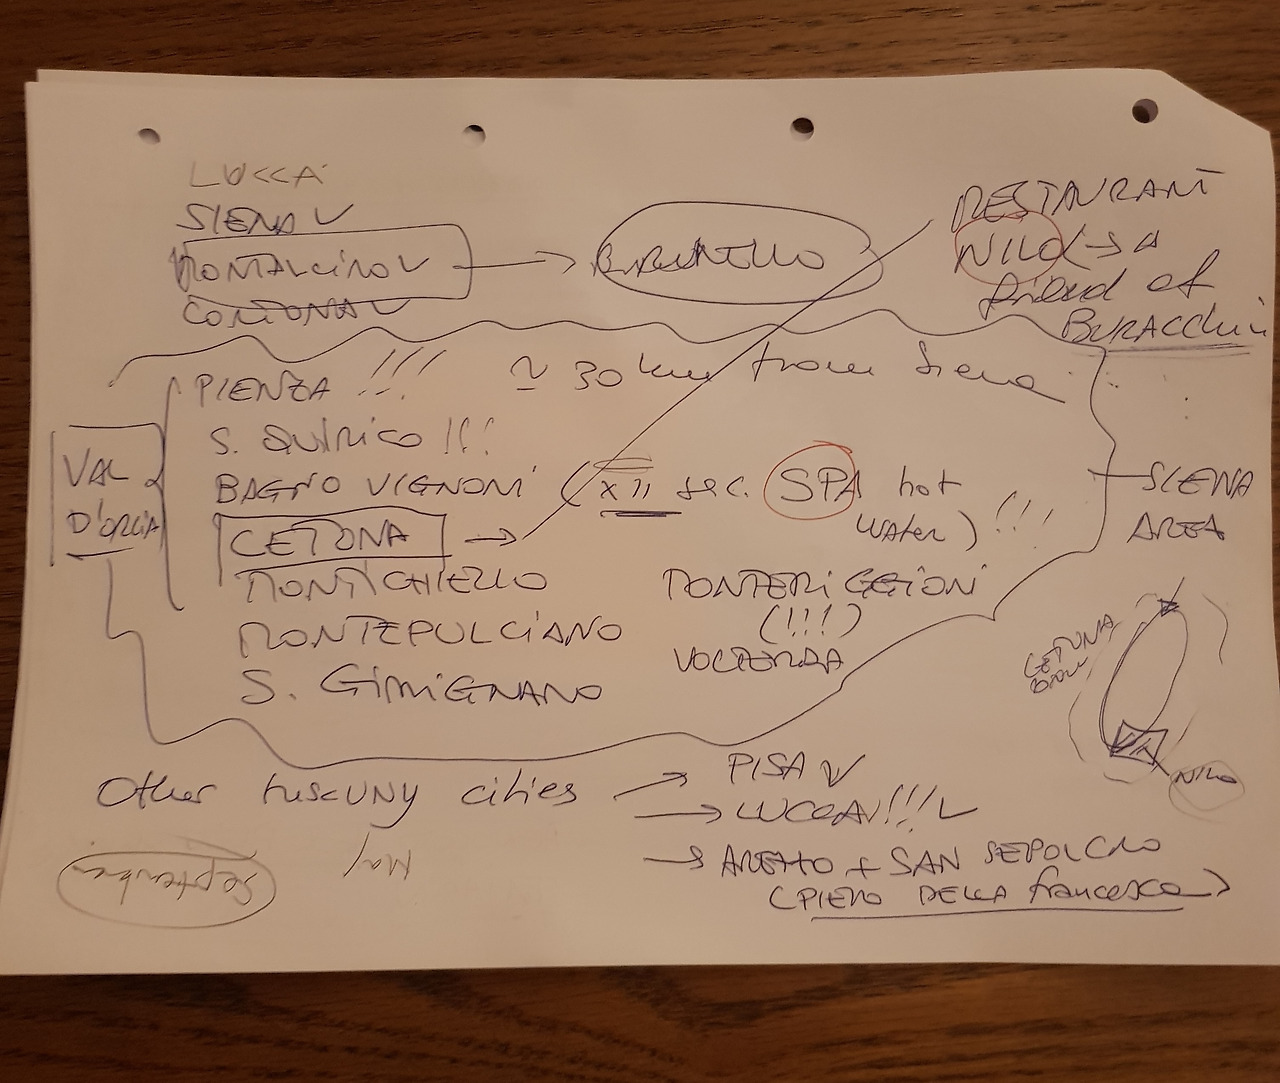 LUCCA
SIENA V
MONTALCINO V
CORTONA V
BRUNELLO
RESTAURANT
NILO (→ A
friend of
BURACCHI
PIENZA !!!
≃ 30 km from Siena
S. QUIRICO !!!
BAGNO VIGNONI (XII sec. SPA hot
water) !!!
VAL
D'ORCIA
CETONA →
MONTICHIELLO
MONTEPULCIANO
S. GIMIGNANO
MONTERIGGIONI
(!!!)
VOLTERRA
SIENA
AREA
CETONA
NILO
Other tuscuny cities
→ PISA V
→ LUCCA !!! V
→ AREZZO + SAN SEPOLCRO
(PIERO DELLA francesca)
May
September